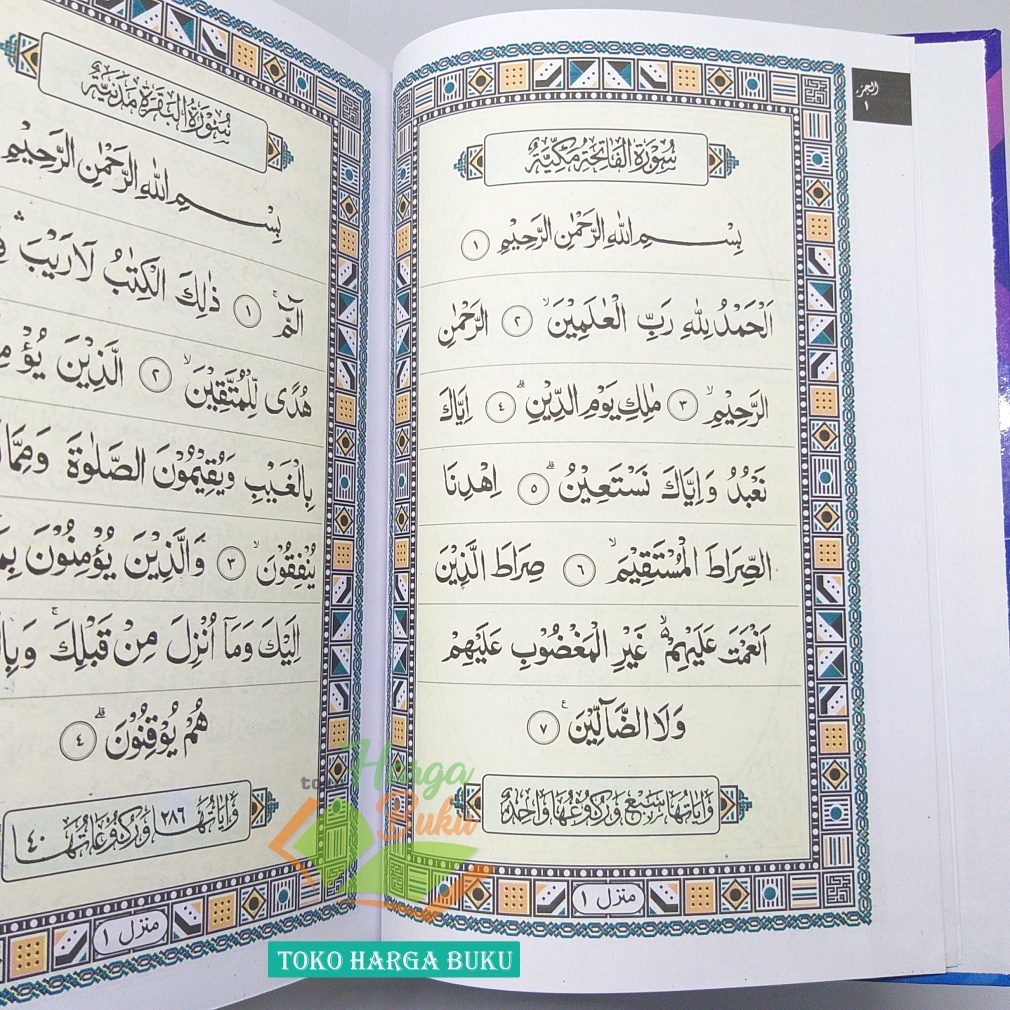 الجزء
١
سُوْرَةُ الْفَاتِحَةِ مَكِّيَّةٌ
بِسْمِ اللّٰهِ الرَّحْمٰنِ الرَّحِيْمِ ١
اَلْحَمْدُ لِلّٰهِ رَبِّ الْعٰلَمِيْنَۙ ٢ الرَّحْمٰنِ
الرَّحِيْمِۙ ٣ مٰلِكِ يَوْمِ الدِّيْنِۗ ٤ اِيَّاكَ
نَعْبُدُ وَاِيَّاكَ نَسْتَعِيْنُۗ ٥ اِهْدِنَا
الصِّرَاطَ الْمُسْتَقِيْمَۙ ٦ صِرَاطَ الَّذِيْنَ
اَنْعَمْتَ عَلَيْهِمْ ەۙ غَيْرِ الْمَغْضُوْبِ عَلَيْهِمْ
وَلَا الضَّاۤلِّيْنَ ࣖ ٧
وَاٰيَاتُهَا سَبْعٌ وَرُكُوْعُهَا وَاحِدَةٌ
منزل ١
سُوْرَةُ الْبَقَرَةِ مَدَنِيَّةٌ
بِسْمِ اللّٰهِ الرَّحْمٰنِ الرَّحِيْمِ
الۤمّۤۚ ١ ذٰلِكَ الْكِتٰبُ لَا رَيْبَۛ
هُدًى لِّلْمُتَّقِيْنَۙ ٢ الَّذِيْنَ
بِالْغَيْبِ وَيُقِيْمُوْنَ الصَّلٰوةَ
يُنْفِقُوْنَۙ ٣ وَالَّذِيْنَ يُؤْمِنُوْنَ
اِلَيْكَ وَمَآ اُنْزِلَ مِنْ قَبْلِكَۚ
هُمْ يُوْقِنُوْنَۗ ٤
وَاٰيَاتُهَا ٢٨٦ وَرُكُوْعَاتُهَا ٤٠
منزل ١
toko
Harga
Buku
TOKO HARGA BUKU